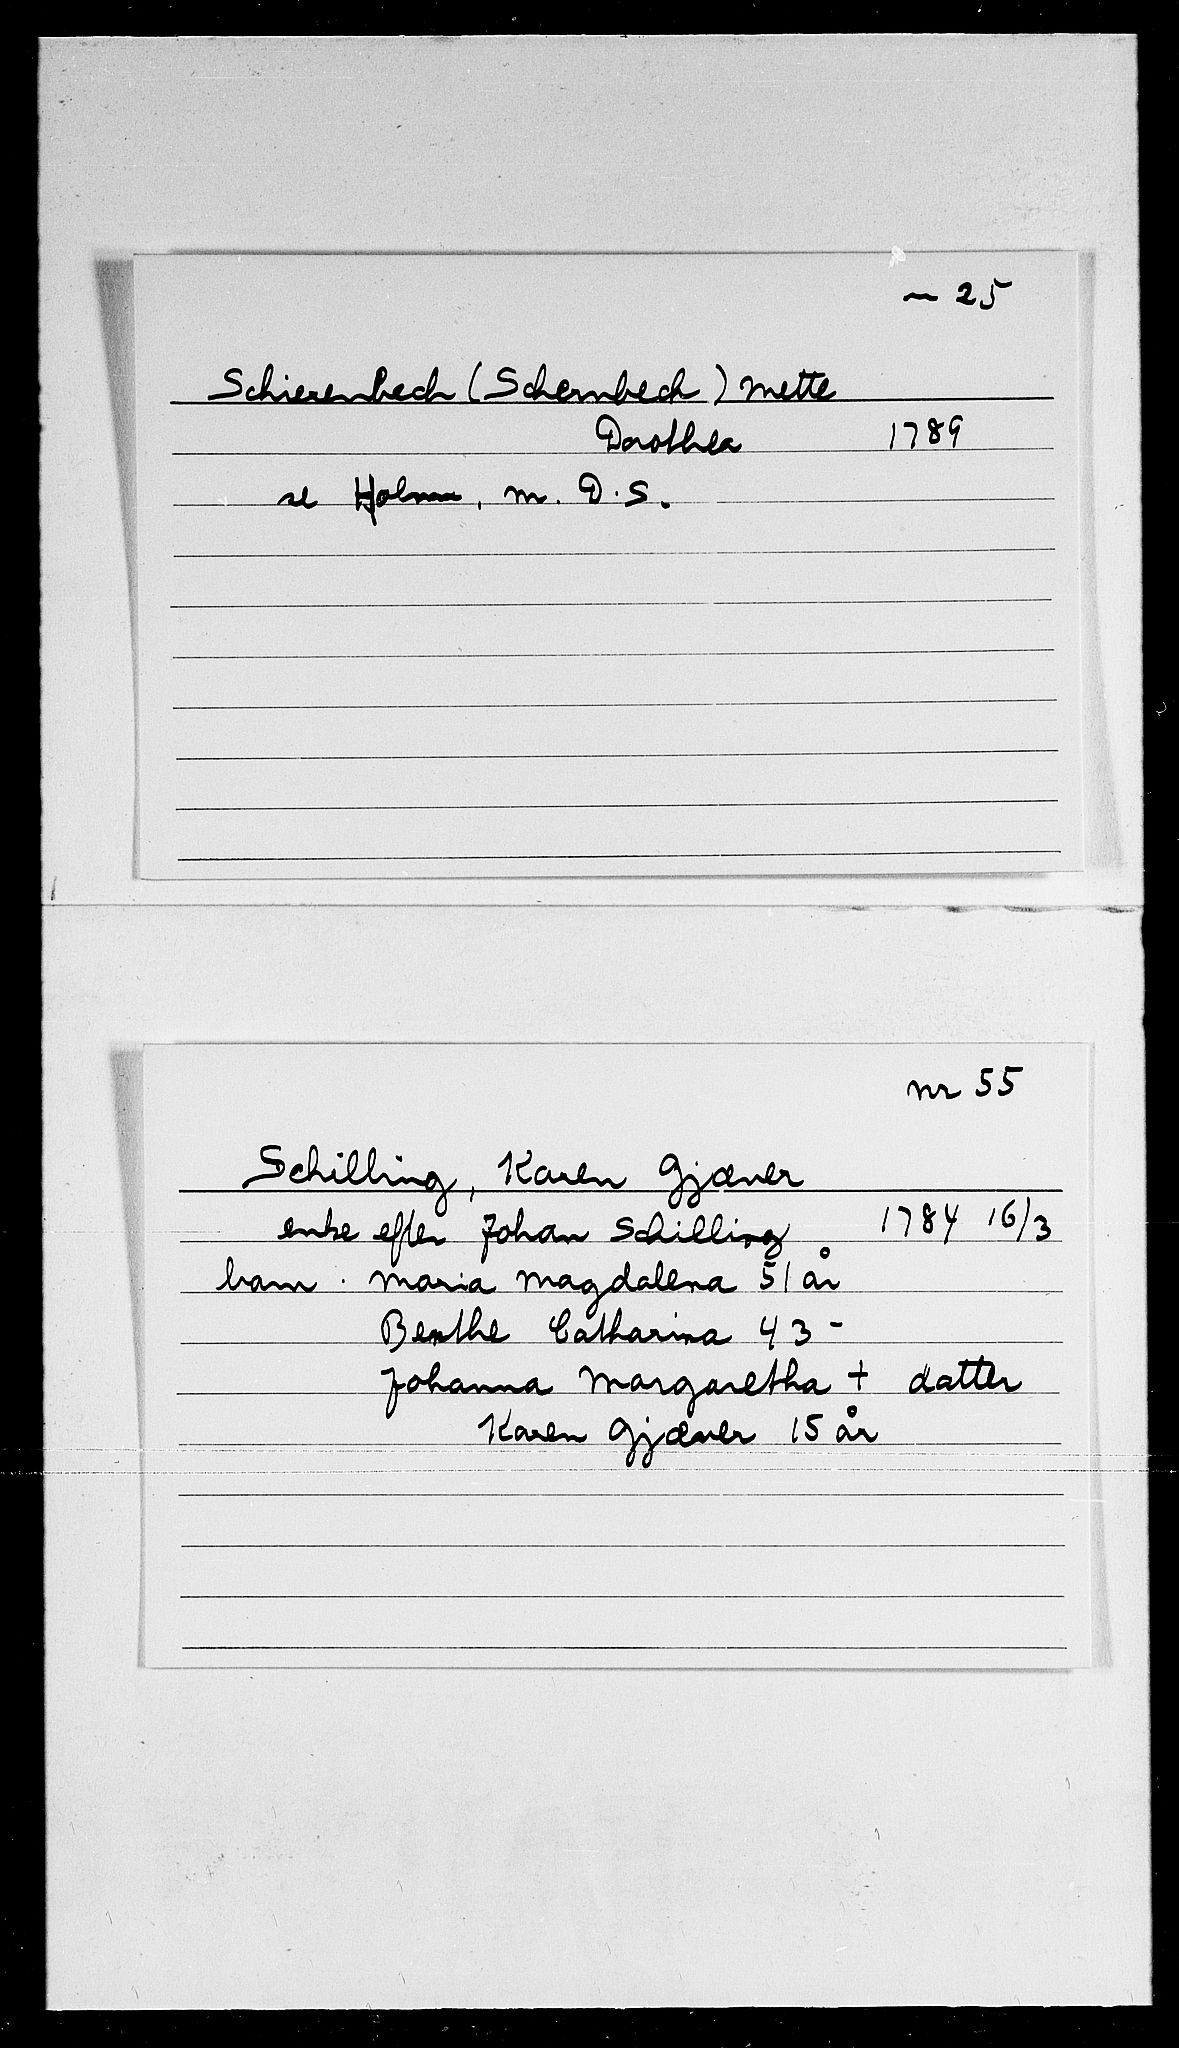 ~ 25
Schierenbech (Schernbech) Mette
Dorothea 1789
se Holmn, M. D. S.
nr 55
Schilling, Karen Gjæver
enke efter Johan Schilling 1784 16/3
barn . Maria Magdalena 51 år
Benthe Catharina 43 -
Johanna Margaretha + datter
Karen Gjæver 15 år